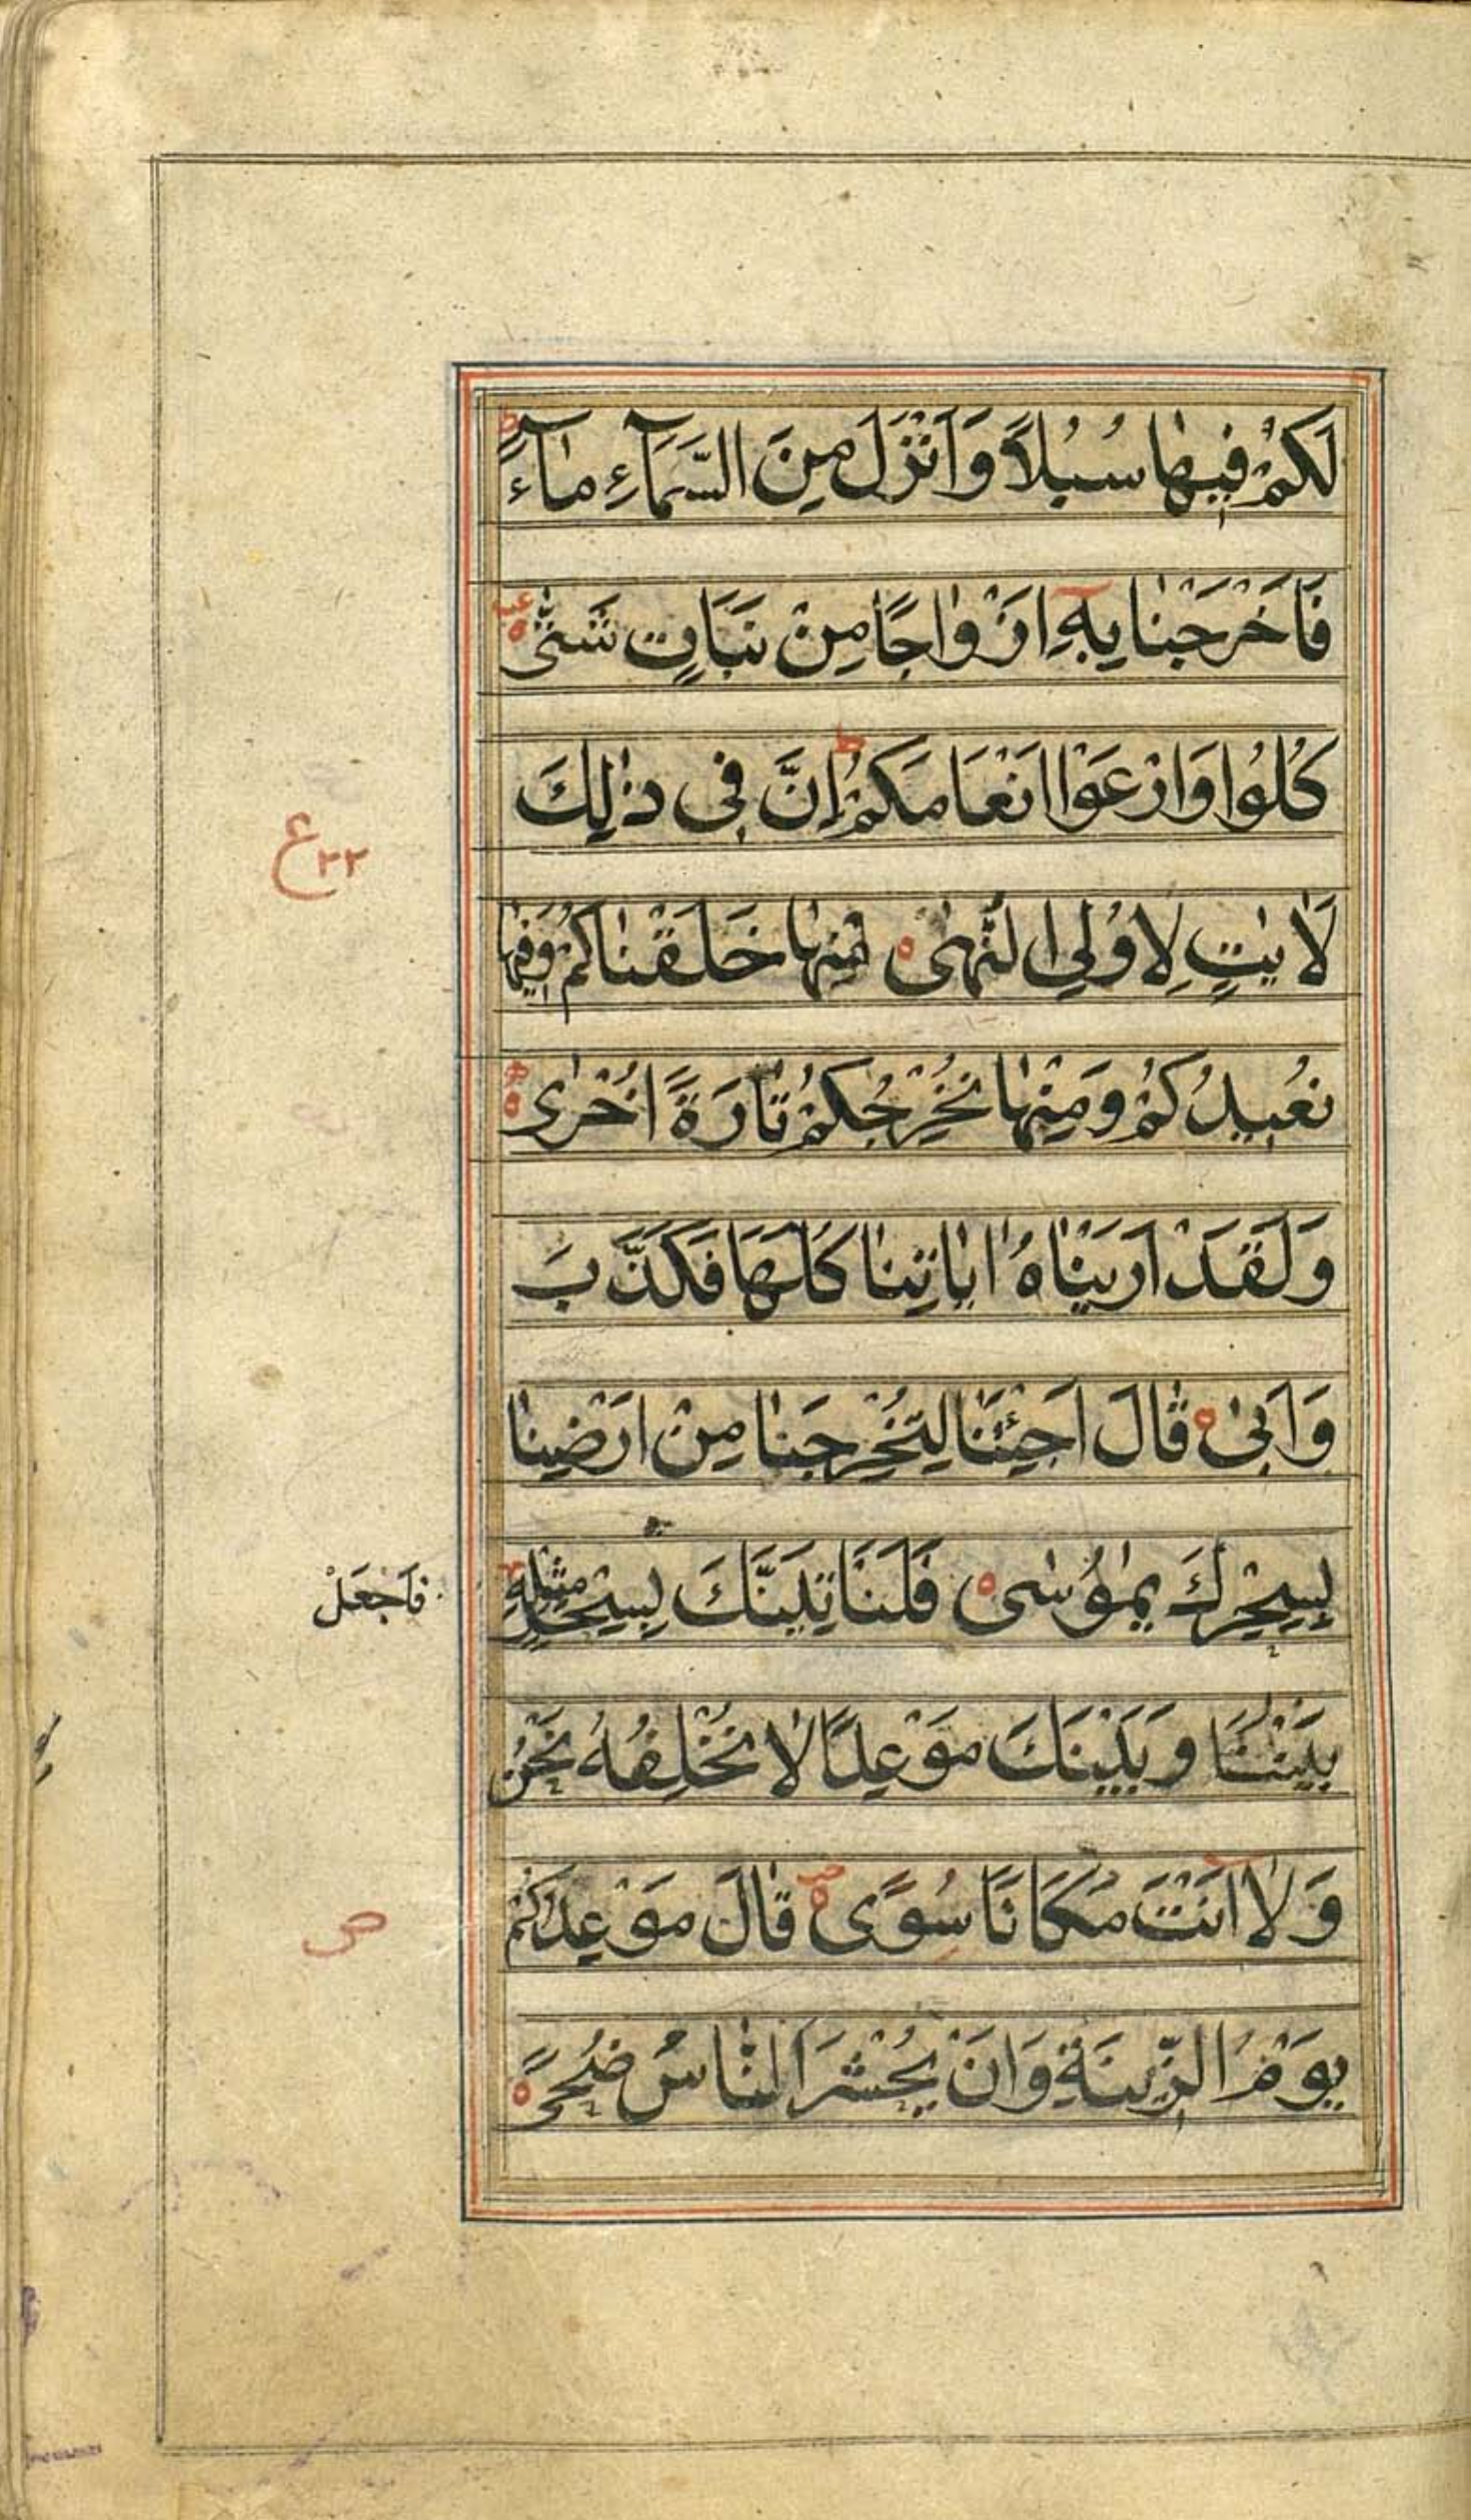 لَكُمْ فِيهَا سُبُلًا وَاَنْزَلَ مِنَ السَّمَآءِ مَآءً ط
فَاَخْرَجْنَا بِهٖٓ اَزْوَاجًا مِنْ نَبَاتٍ شَتّٰى
كُلُوا وَارْعَوْا اَنْعَامَكُمْ ط اِنَّ فِى ذٰلِكَ
لَاٰيٰتٍ لِاُولِى النُّهٰى ه مِنْهَا خَلَقْنَاكُمْ وَفِيهَا
نُعِيدُكُمْ وَمِنْهَا نُخْرِجُكُمْ تَارَةً اُخْرٰى ه
وَلَقَدْ اَرَيْنَاهُ اٰيَاتِنَا كُلَّهَا فَكَذَّبَ
وَاَبٰى ه قَالَ اَجِئْتَنَا لِتُخْرِجَنَا مِنْ اَرْضِنَا
بِسِحْرِكَ يٰمُوْسٰى ه فَلَنَاْتِيَنَّكَ بِسِحْرٍ مِثْلِهٖ
فَاجْعَلْ
بَيْنَنَا وَبَيْنَكَ مَوْعِدًا لَا نُخْلِفُهُ نَحْنُ
وَلَآ اَنْتَ مَكَانًا سُوًى ه قَالَ مَوْعِدُكُمْ
يَوْمُ الزِّينَةِ وَاَنْ يُحْشَرَ النَّاسُ ضُحًى ه
ع ٢٢
ص